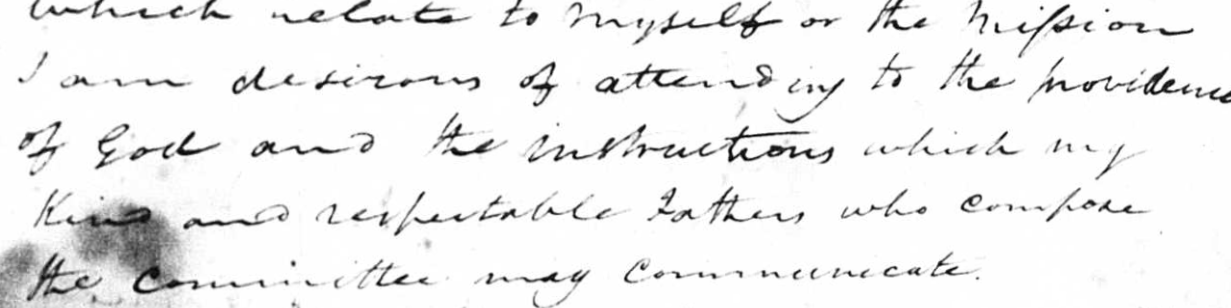 which relate to myself or the Mission
I am desirous of attending to the providence
of God and the instructions which my
Kind and respectable Fathers who compose
the Committee may communicate.